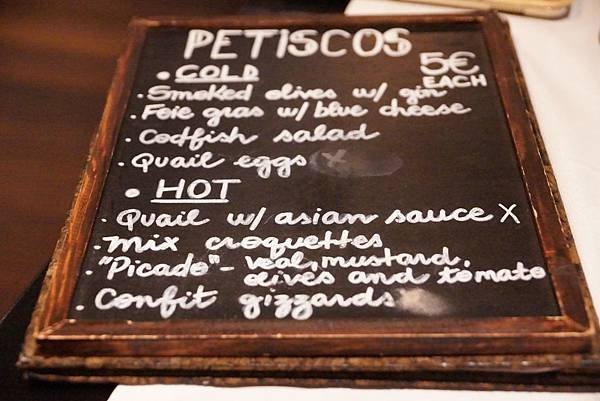 PETISCOS
5€
EACH
• COLD
· Smoked olives w/ gin
· Foie gras w/ blue cheese
· Codfish salad
· Quail eggs x
• HOT
· Quail w/ asian sauce X
· Mix croquettes
· "Picado" - veal, mustard,
olives and tomato
· Confit gizzards